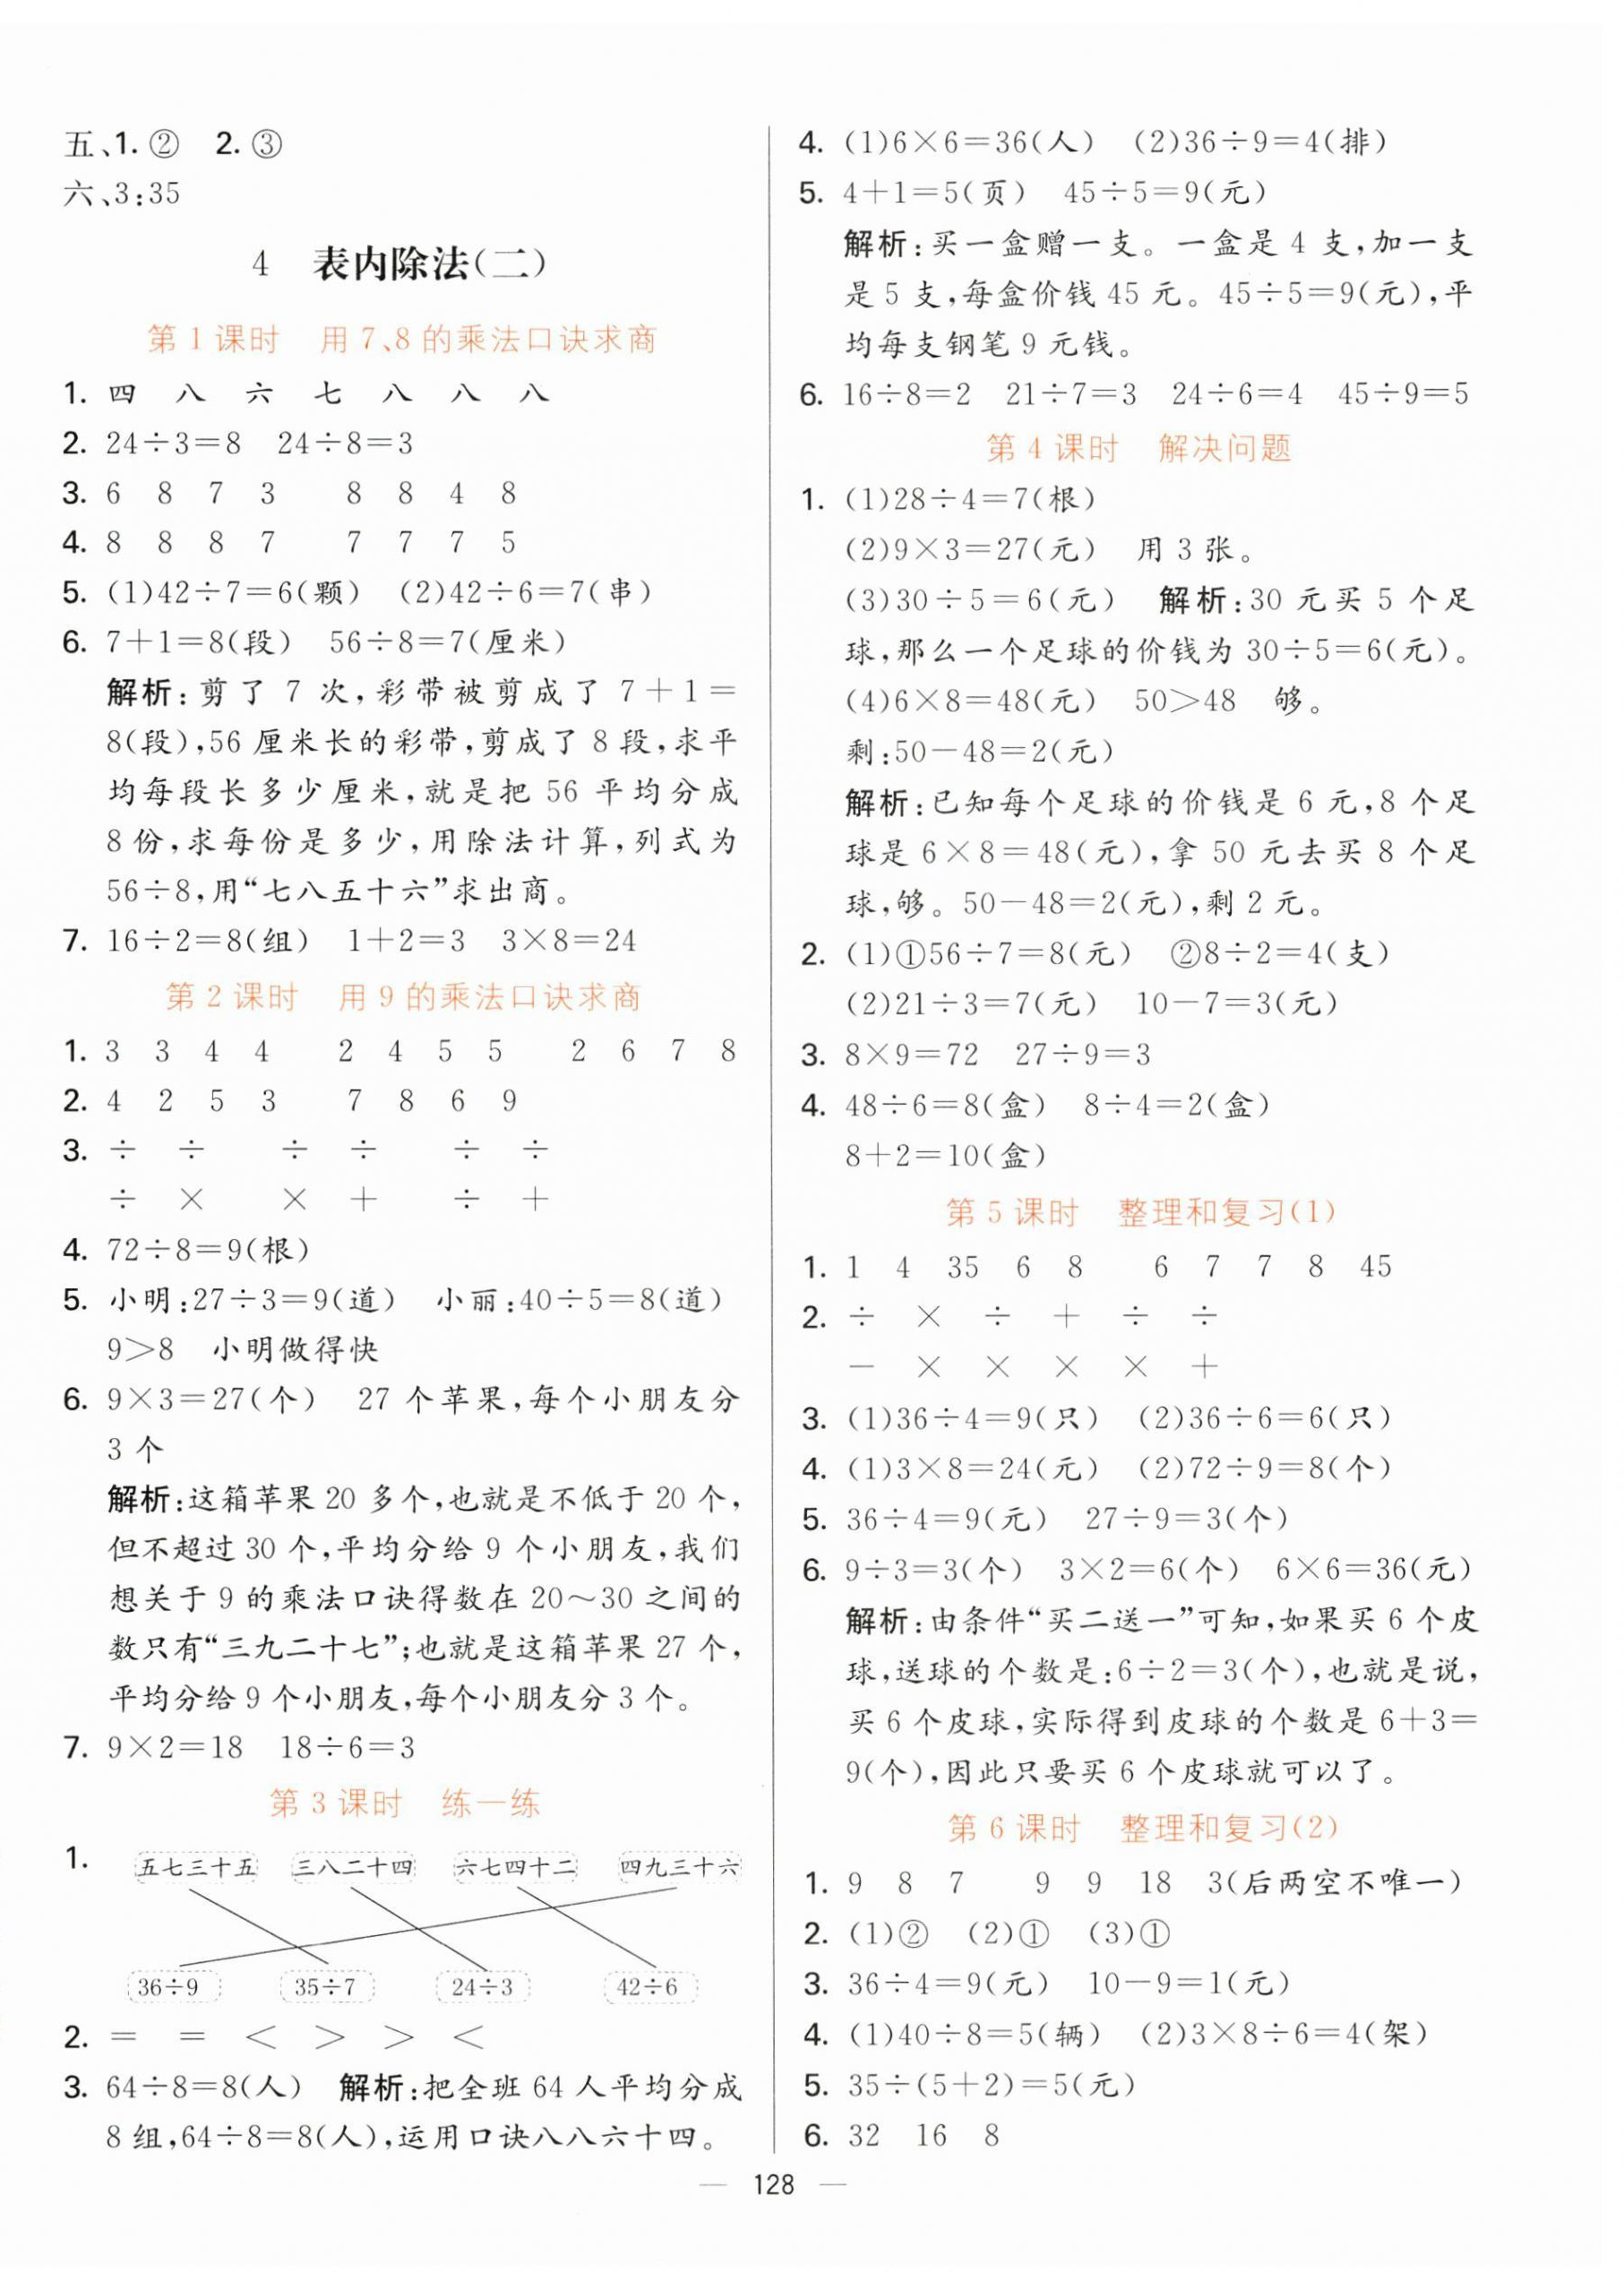 五、1. ② 2. ③
六、3:35
4 表内除法(二)
第1课时 用7、8的乘法口诀求商
1. 四 八 六 七 八 八 八
2. 24÷3=8 24÷8=3
3. 6 8 7 3 8 8 4 8
4. 8 8 8 7 7 7 7 5
5. (1)42÷7=6(颗) (2)42÷6=7(串)
6. 7+1=8(段) 56÷8=7(厘米)
解析:剪了 7 次,彩带被剪成了 7+1=
8(段),56 厘米长的彩带,剪成了 8 段,求平
均每段长多少厘米,就是把 56 平均分成
8 份,求每份是多少,用除法计算,列式为
56÷8,用“七八五十六”求出商。
7. 16÷2=8(组) 1+2=3 3×8=24
第2课时 用9的乘法口诀求商
1. 3 3 4 4 2 4 5 5 2 6 7 8
2. 4 2 5 3 7 8 6 9
3. ÷ ÷ ÷ ÷ ÷ ÷
÷ × × + ÷ +
4. 72÷8=9(根)
5. 小明:27÷3=9(道) 小丽:40÷5=8(道)
9>8 小明做得快
6. 9×3=27(个) 27 个苹果,每个小朋友分
3 个
解析:这箱苹果 20 多个,也就是不低于 20 个,
但不超过 30 个,平均分给 9 个小朋友,我们
想关于 9 的乘法口诀得数在 20~30 之间的
数只有“三九二十七”;也就是这箱苹果 27 个,
平均分给 9 个小朋友,每个小朋友分 3 个。
7. 9×2=18 18÷6=3
第3课时 练一练
1. 五七三十五 三八二十四 六七四十二 四九三十六
36÷9 35÷7 24÷3 42÷6
2. = = < > > <
3. 64÷8=8(人) 解析:把全班 64 人平均分成
8 组,64÷8=8(人),运用口诀八八六十四。
4. (1)6×6=36(人) (2)36÷9=4(排)
5. 4+1=5(页) 45÷5=9(元)
解析:买一盒赠一支。一盒是 4 支,加一支
是 5 支,每盒价钱 45 元。45÷5=9(元),平
均每支钢笔 9 元钱。
6. 16÷8=2 21÷7=3 24÷6=4 45÷9=5
第4课时 解决问题
1. (1)28÷4=7(根)
(2)9×3=27(元) 用 3 张。
(3)30÷5=6(元) 解析:30 元买 5 个足
球,那么一个足球的价钱为 30÷5=6(元)。
(4)6×8=48(元) 50>48 够。
剩:50-48=2(元)
解析:已知每个足球的价钱是 6 元,8 个足
球是 6×8=48(元),拿 50 元去买 8 个足
球,够。50-48=2(元),剩 2 元。
2. (1)①56÷7=8(元) ②8÷2=4(支)
(2)21÷3=7(元) 10-7=3(元)
3. 8×9=72 27÷9=3
4. 48÷6=8(盒) 8÷4=2(盒)
8+2=10(盒)
第5课时 整理和复习(1)
1. 1 4 35 6 8 6 7 7 8 45
2. ÷ × ÷ + ÷ ÷
- × × × × +
3. (1)36÷4=9(只) (2)36÷6=6(只)
4. (1)3×8=24(元) (2)72÷9=8(个)
5. 36÷4=9(元) 27÷9=3(个)
6. 9÷3=3(个) 3×2=6(个) 6×6=36(元)
解析:由条件“买二送一”可知,如果买 6 个皮
球,送球的个数是:6÷2=3(个),也就是说,
买 6 个皮球,实际得到皮球的个数是 6+3=
9(个),因此只要买 6 个皮球就可以了。
第6课时 整理和复习(2)
1. 9 8 7 9 9 18 3(后两空不唯一)
2. (1)② (2)① (3)①
3. 36÷4=9(元) 10-9=1(元)
4. (1)40÷8=5(辆) (2)3×8÷6=4(架)
5. 35÷(5+2)=5(元)
6. 32 16 8
— 128 —